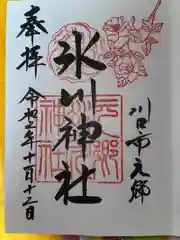 川口市元郷
奉拝
氷川神社
令和二年十一月十三日